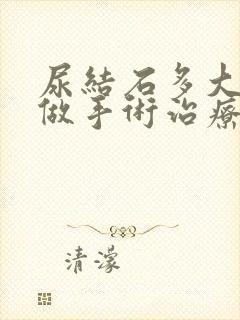 尿結石多大
做手術治療
清濛